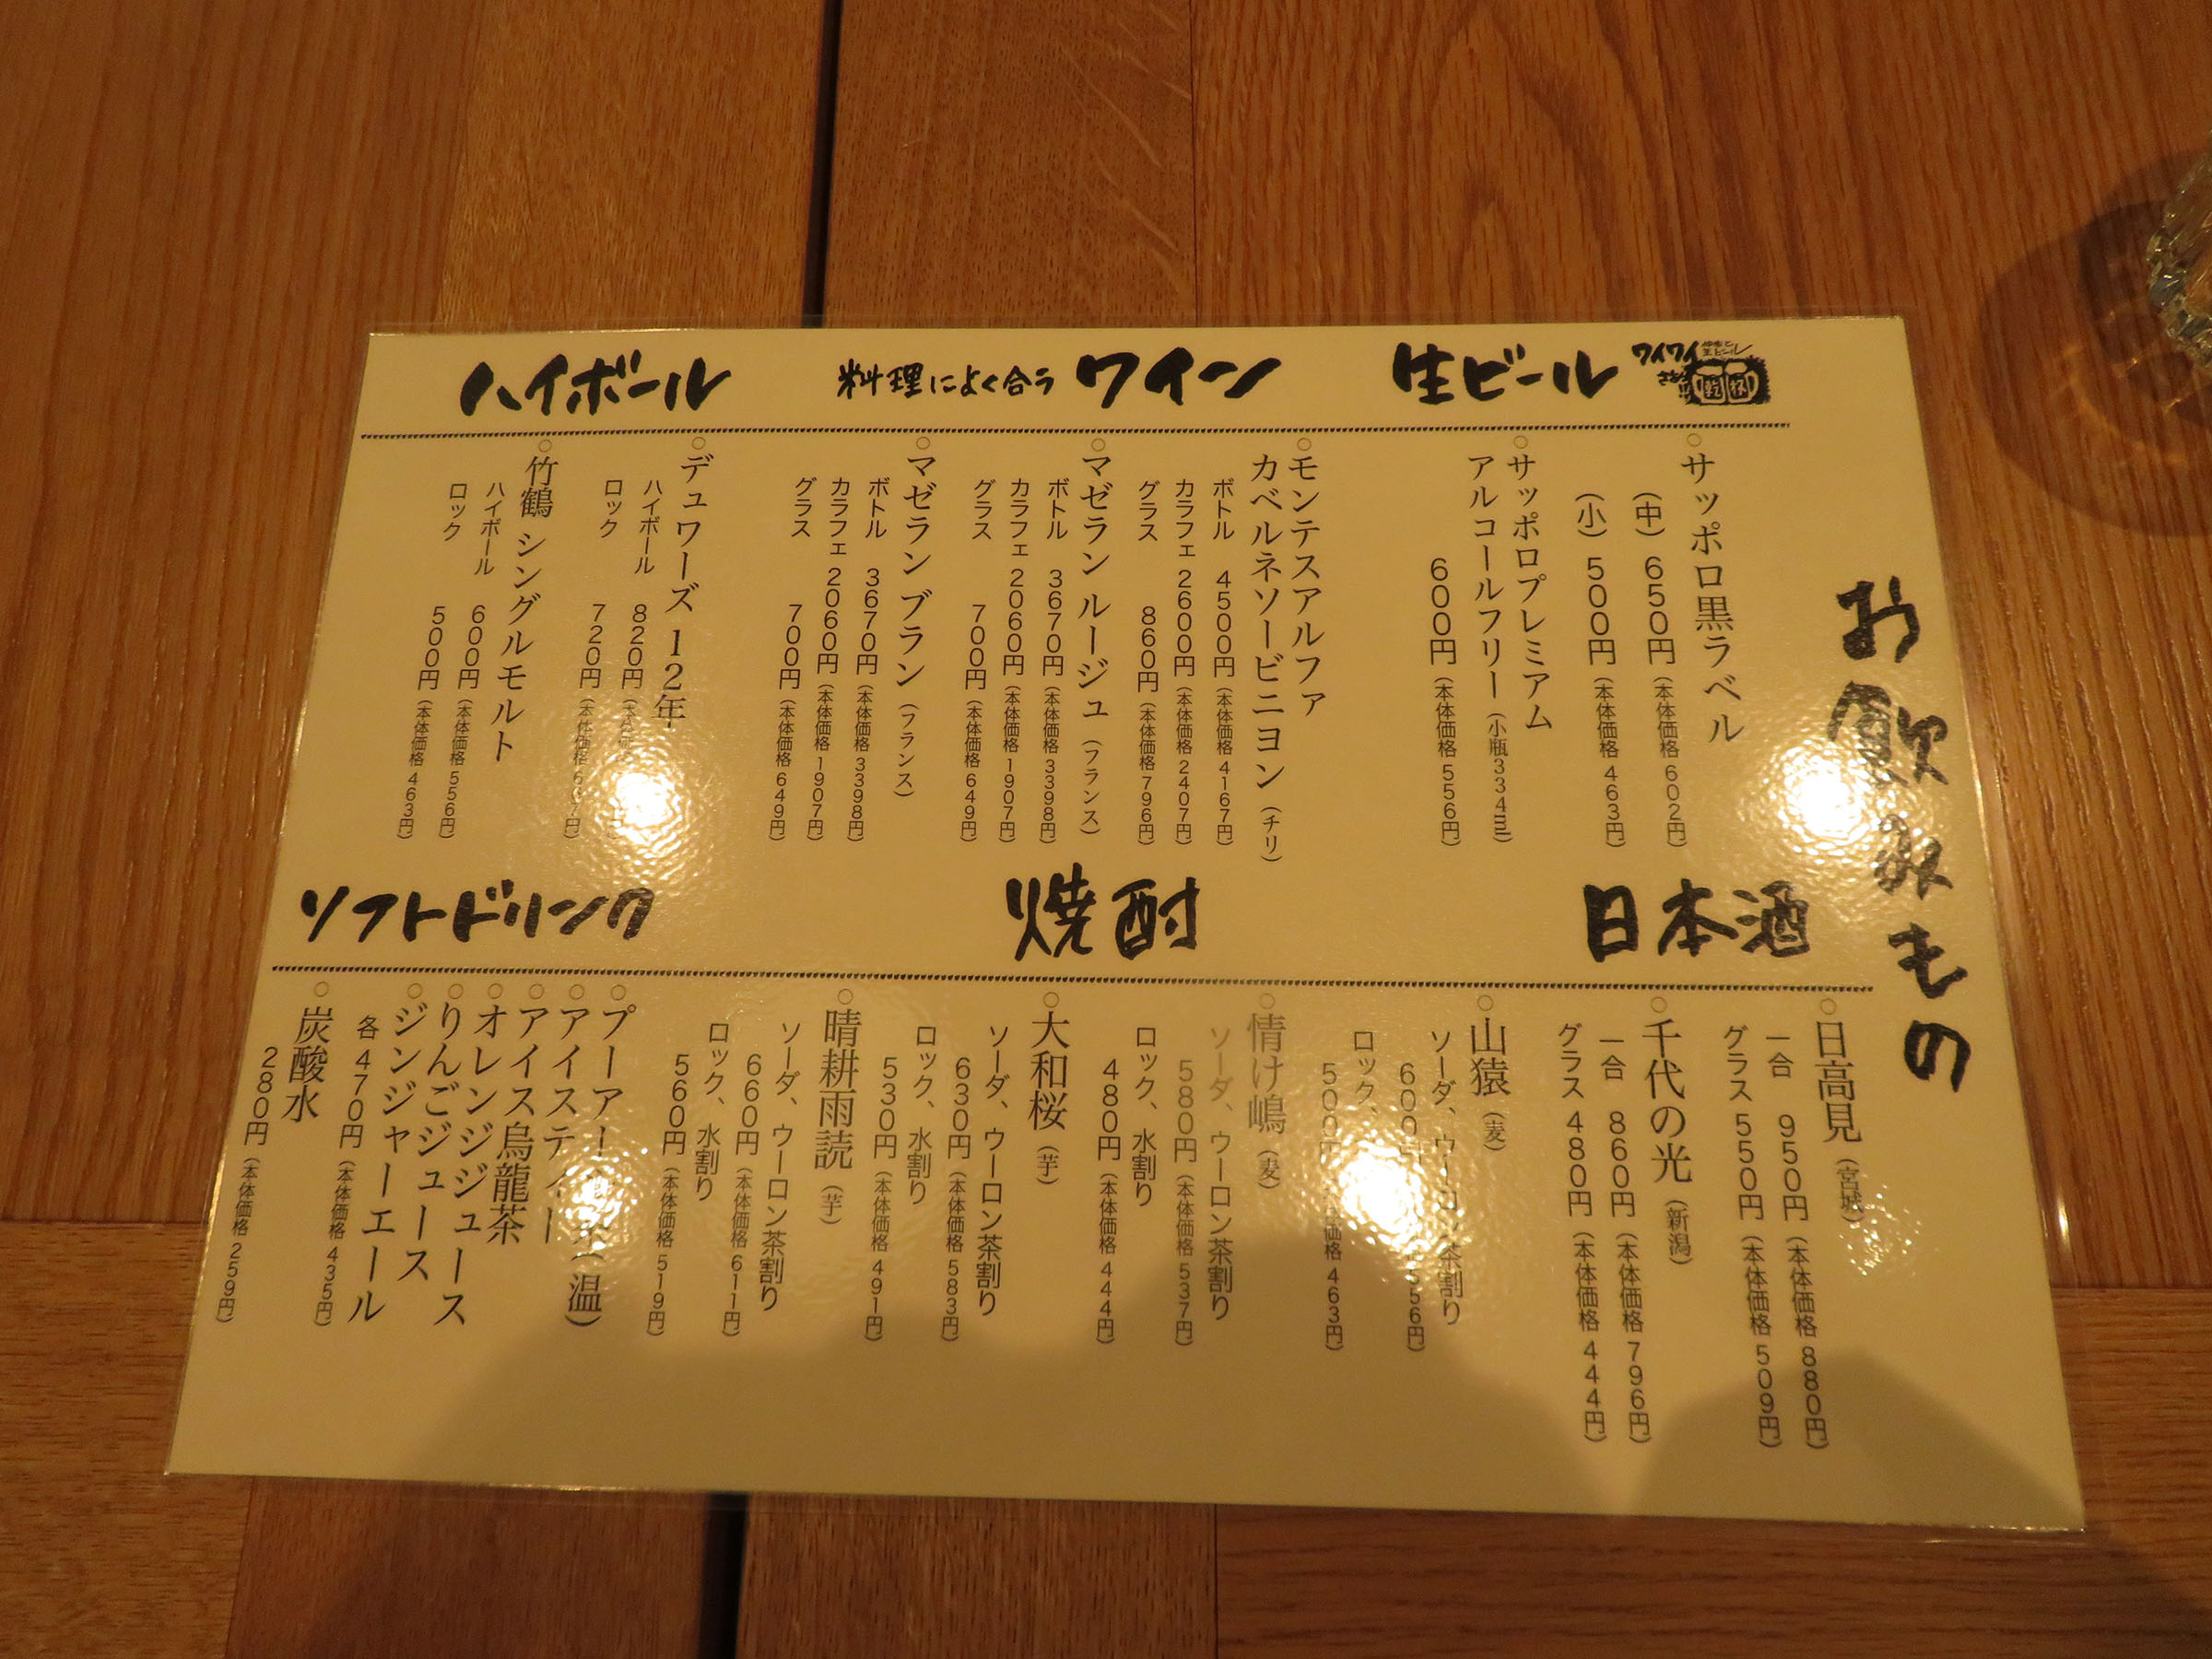 お飲みもの
生ビール
ワイワイ
乾杯
○サッポロ黒ラベル
(中) 650円(本体価格 602円)
(小) 500円(本体価格 463円)
○サッポロプレミアム
アルコールフリー(小瓶334ml)
600円(本体価格 556円)
料理によく合う ワイン
○モンテスアルファ
カベルネソービニヨン(チリ)
ボトル 4500円(本体価格 4167円)
カラフェ 2600円(本体価格 2407円)
グラス 860円(本体価格 796円)
○マゼラン ルージュ(フランス)
ボトル 3670円(本体価格 3398円)
カラフェ 2060円(本体価格 1907円)
グラス 700円(本体価格 649円)
○マゼラン ブラン(フランス)
ボトル 3670円(本体価格 3398円)
カラフェ 2060円(本体価格 1907円)
グラス 700円(本体価格 649円)
ハイボール
○デュワーズ 12年
ハイボール 820円
ロック 720円(本体価格
○竹鶴 シングルモルト
ハイボール 600円(本体価格 556円)
ロック 500円(本体価格 463円)
日本酒
○日高見(宮城)
一合 950円(本体価格 880円)
グラス 550円(本体価格 509円)
○千代の光(新潟)
一合 860円(本体価格 796円)
グラス 480円(本体価格 444円)
○山猿(麦)
ソーダ、ウーロン茶割り
600 556円)
ロック、
500円 価格 463円)
焼酎
○情け嶋(麦)
ソーダ、ウーロン茶割り
580円(本体価格 537円)
ロック、水割り
480円(本体価格 444円)
○大和桜(芋)
ソーダ、ウーロン茶割り
630円(本体価格 583円)
ロック、水割り
530円(本体価格 491円)
○晴耕雨読(芋)
ソーダ、ウーロン茶割り
660円(本体価格 611円)
ロック、水割り
560円(本体価格 519円)
ソフトドリンク
○プーアー 茶(温)
○アイスティー
○アイス烏龍茶
○オレンジジュース
○りんごジュース
○ジンジャーエール
各 470円(本体価格 435円)
○炭酸水
280円(本体価格 259円)